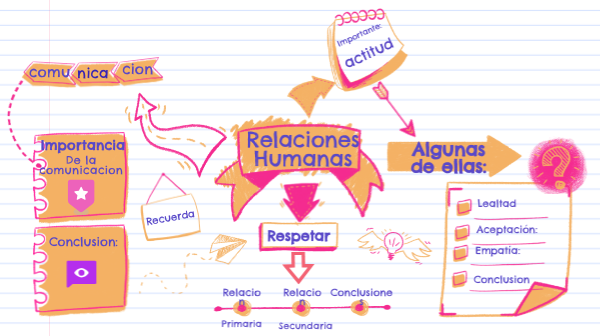 Importante:
actitud
comunicacion
Relaciones
Humanas
Algunas
de ellas:
Importancia
De la
comunicacion
Recuerda
Conclusion:
Respetar
Lealtad
Aceptación:
Empatia:
Conclusion
Relacio
n
Relacio
n
Conclusione
s
Primaria
Secundaria